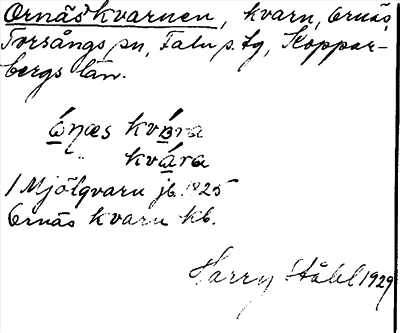 Ornäs kvarnen, kvarn, Ornäs,
Torsångs sn, Falu s. tg, Koppar-
bergs län.
ó̱ŋæs kvɒ̱́ra
kvá̱ra
1 Mjölqvarn jb. 1825
Ornäs kvarn kb.
Harry Ståhl 1929